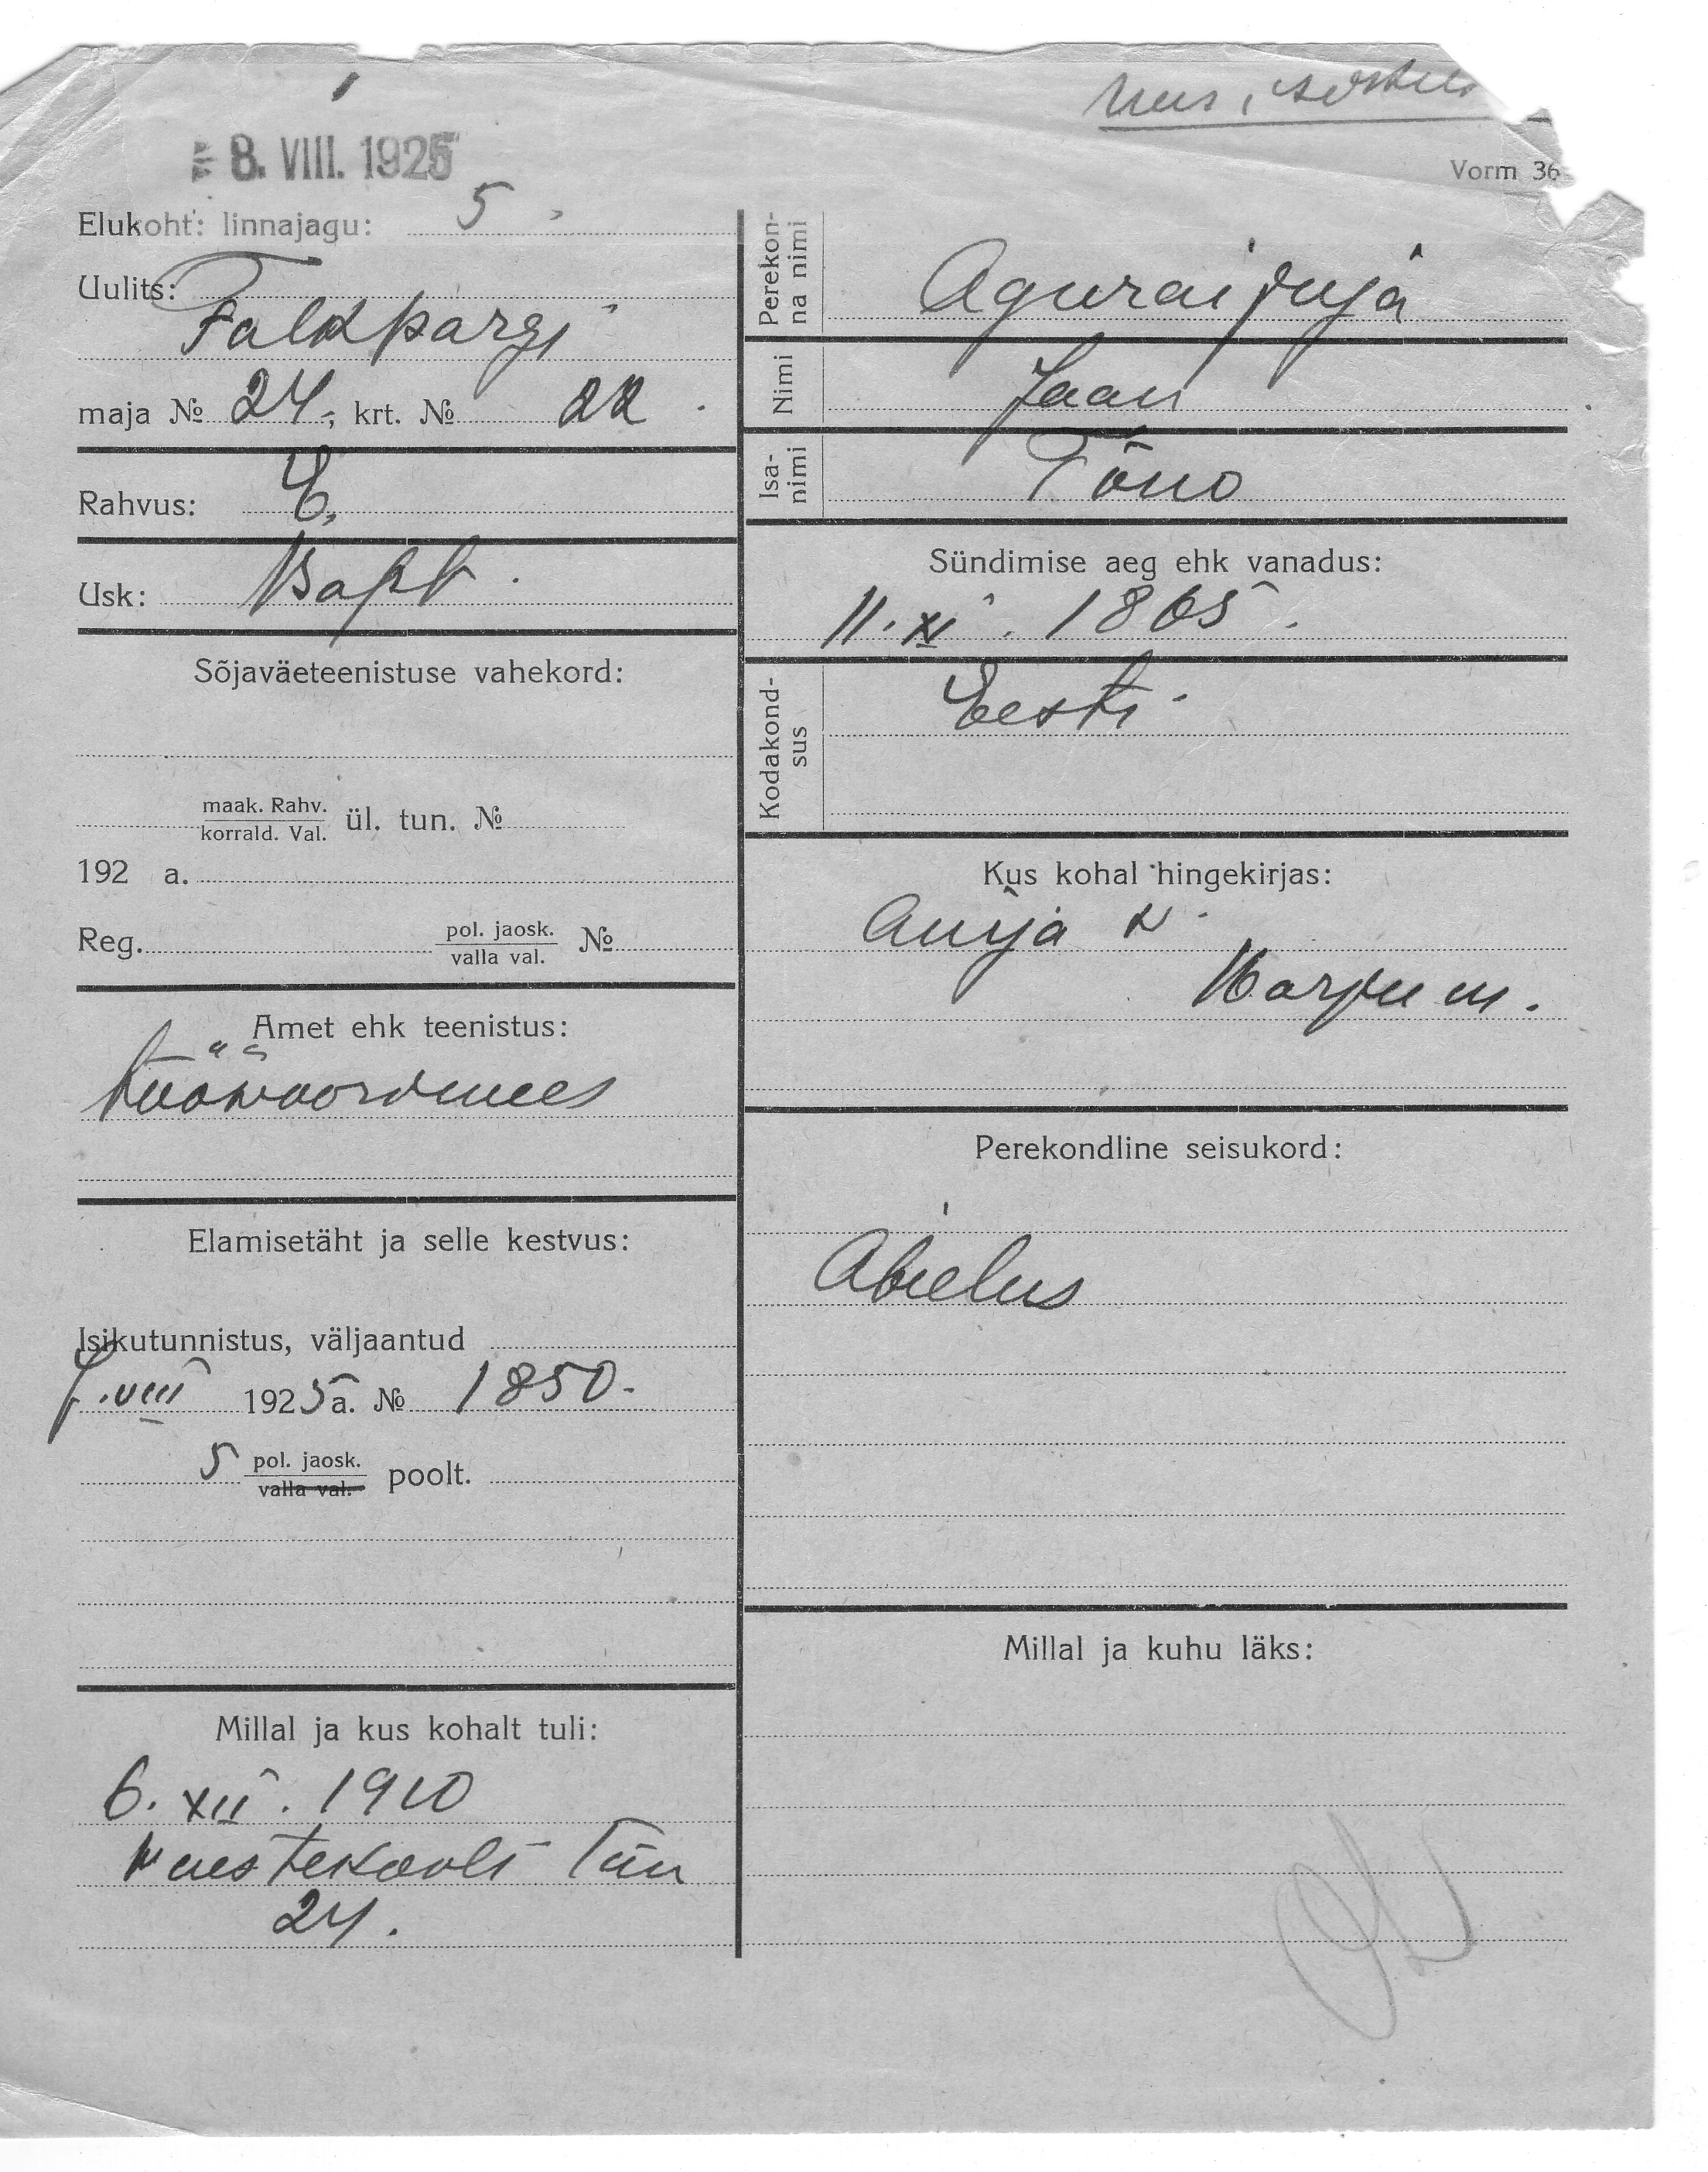 8. VIII. 1925
Vorm 36
Elukoht: linnajagu: 5
Uulits:
Falkpargi
maja № 24, krt. № 22.
Rahvus: E.
Usk: Bapt.
Sõjaväeteenistuse vahekord:
maak. Rahv.
korrald. Val. ül. tun. №
192 a.
Reg. pol. jaosk.
valla val. №
Amet ehk teenistus:
Elamisetäht ja selle kestvus:
Isikutunnistus, väljaantud
7. VIII 1925 a. № 1850.
5 pol. jaosk.
valla val. poolt.
Millal ja kus kohalt tuli:
6. XII. 1910
24.
Perekonna nimi
Nimi Jaan
Isanimi Tõno
Sündimise aeg ehk vanadus:
11. XI. 1865.
Kodakondsus Eesti
Kus kohal hingekirjas:
Anija v.
Harju m.
Perekondline seisukord:
Abielus
Millal ja kuhu läks: